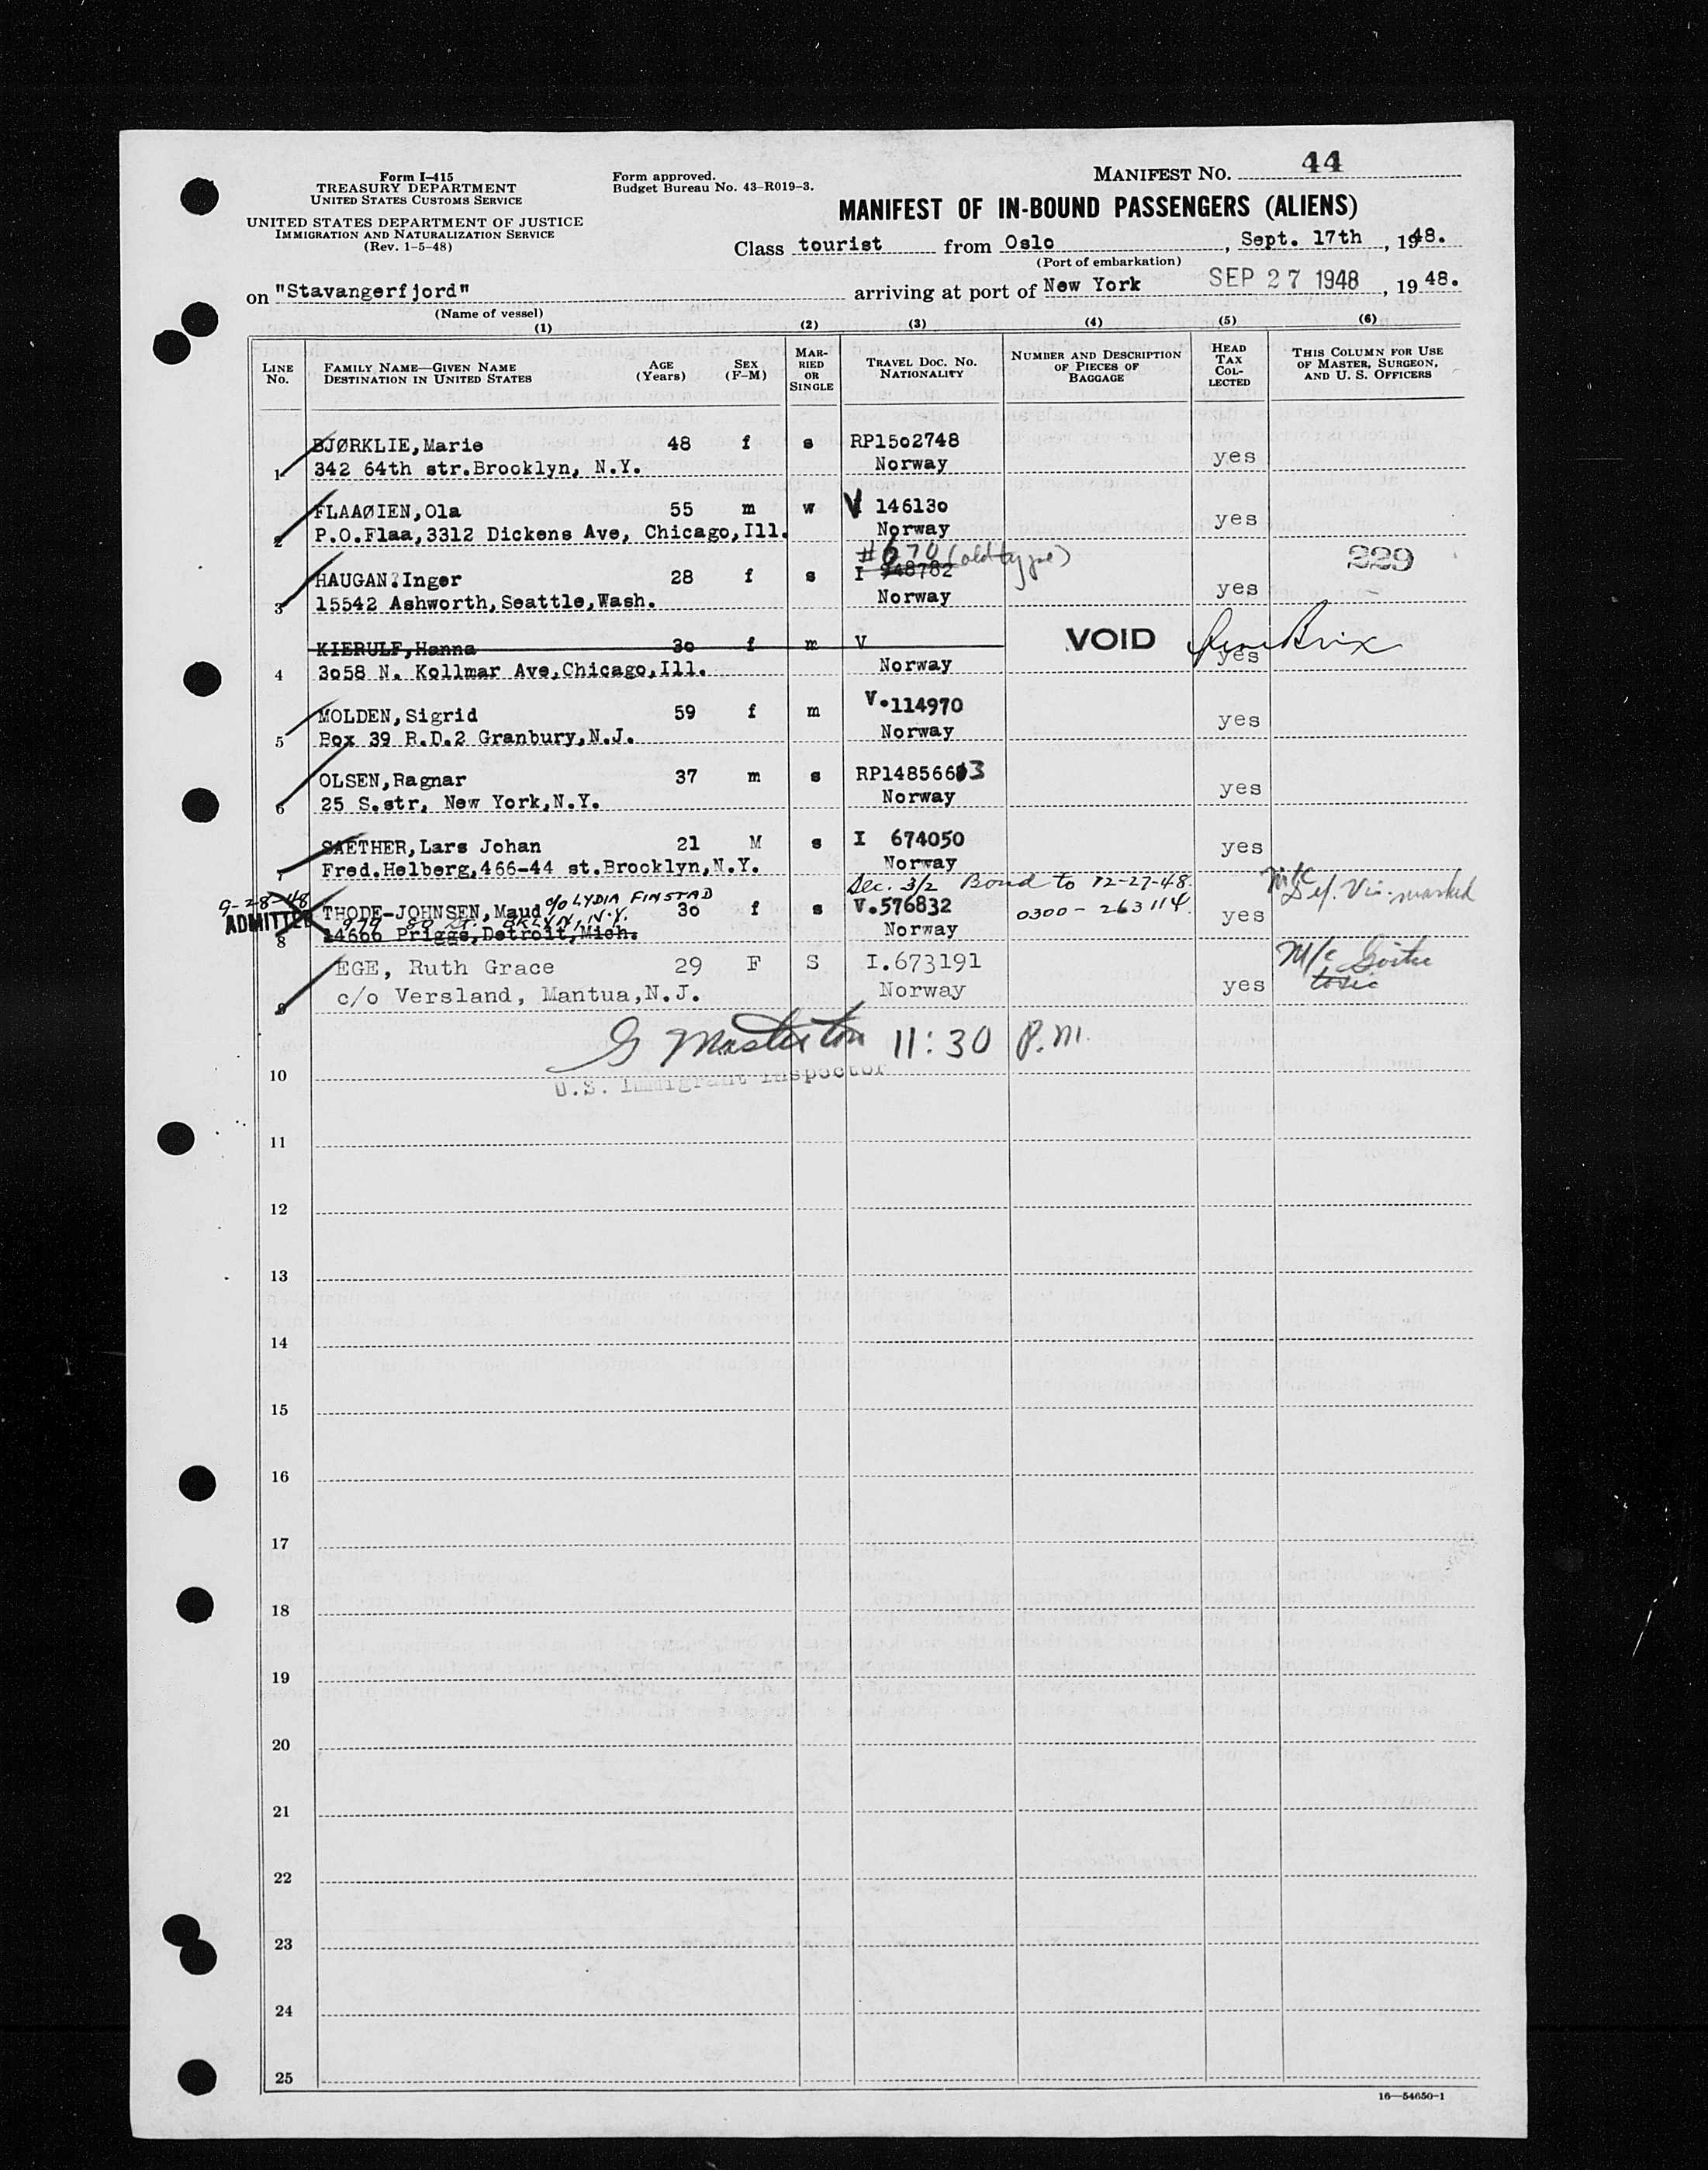 Form I-415
TREASURY DEPARTMENT
UNITED STATES CUSTOMS SERVICE
UNITED STATES DEPARTMENT OF JUSTICE
IMMIGRATION AND NATURALIZATION SERVICE
(Rev. 1-5-48)
Form approved.
Budget Bureau No. 43-R019-3.
MANIFEST NO. 44
MANIFEST OF IN-BOUND PASSENGERS (ALIENS)
Class tourist from Oslo, Sept. 17th, 1948.
(Port of embarkation)
on "Stavangerfjord" arriving at port of New York SEP 27 1948, 1948.
(Name of vessel)
(1) (2) (3) (4) (5) (6)
LINE No. FAMILY NAME—GIVEN NAME DESTINATION IN UNITED STATES AGE (Years) SEX (F-M) MARRIED OR SINGLE TRAVEL DOC. NO. NATIONALITY NUMBER AND DESCRIPTION OF PIECES OF BAGGAGE HEAD TAX COLLECTED THIS COLUMN FOR USE OF MASTER, SURGEON, AND U. S. OFFICERS
BJØRKLIE, Marie 48 f s RP1502748
1 342 64th str.Brooklyn, N.Y. Norway yes
FLAAØIEN, Ola 55 m w V 146130
2 P.O.Flaa, 3312 Dickens Ave, Chicago, Ill. Norway yes
#670 (old type) 229
HAUGAN.Inger 28 f s I 948782
3 15542 Ashworth, Seattle, Wash. Norway yes
KIERULF, Hanna 30 f m V VOID
4 3058 N. Kollmar Ave, Chicago, Ill. Norway yes
MOLDEN, Sigrid 59 f m V.114970
5 Box 39 R.D.2 Granbury, N.J. Norway yes
OLSEN, Ragnar 37 m s RP14856613
6 25 S.str, New York, N.Y. Norway yes
SAETHER, Lars Johan 21 M s I 674050
7 Fred.Helberg, 466-44 st.Brooklyn, N.Y. Norway yes
Sec. 3/2 Bond to 12-27-48. M/C Def. Vis. marked
9-28-48 c/o LYDIA FINSTAD
ADMITTED THODE-JOHNSEN, Maud 30 f s V.576832 0300-263114 yes
979 80 St. BKLYN, N.Y.
8 14600 Priggs, Detroit, Mich. Norway
EGE, Ruth Grace 29 F S I.673191 M/c Goitre
9 c/o Versland, Mantua, N.J. Norway yes toxic
G Masterton 11:30 P.M.
U.S. Immigrant Inspector
10
11
12
13
14
15
16
17
18
19
20
21
22
23
24
25
16—54650-1